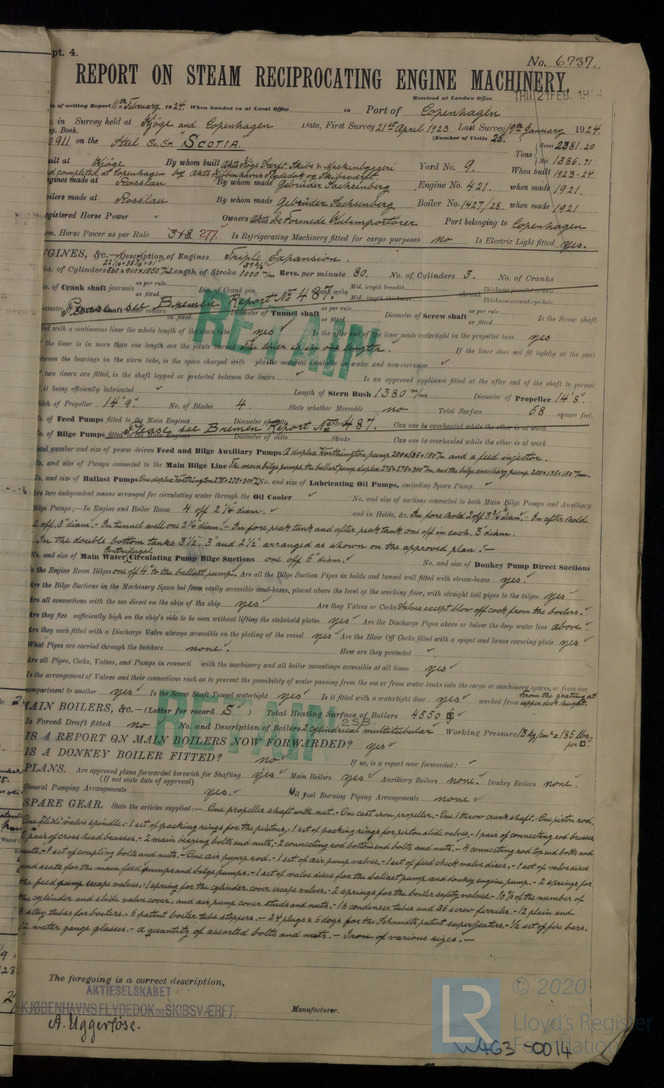 pt. 4.
No. 6737.
REPORT ON STEAM RECIPROCATING ENGINE MACHINERY.
Received at London Office
THU 21 FEB. 192
of writing Report 11th February 1924. When handed in at Local Office to Port of Copenhagen
in Survey held at Kjöge and Copenhagen Date, First Survey 21st April 1923 Last Survey 19th January 1924.
g. Book. (Number of Visits 28.
911 on the Steel S.Sr. "SCOTIA. Tons Gross 2381.20 Net 1386.71
uilt at Kjöge By whom built Yard No. 9. When built 1923-24
d completed at Copenhagen by
ngines made at Rosslau By whom made Gebrüder Sachsenberg Engine No. 421. when made 1921.
oilers made at Rosslau By whom made Gebrüder Sachsenberg Boiler No. 1427/28. when made 1921
egistered Horse Power Owners Port belonging to Copenhagen
om. Horse Power as per Rule 348 277 Is Refrigerating Machinery fitted for cargo purposes no Is Electric Light fitted yes.
NGINES, &c.—Description of Engines Triple Expansion.
o. of Cylinders Length of Stroke 1000 m/m Revs. per minute 80. No. of Cylinders 3. No. of Cranks
Please see Bremen Report No. 487.
of Crank shaft journals as per rule as fitted Dia. of Crank pin Mid. length breadth
Diameter of Tunnel shaft as per rule as fitted Diameter of Screw shaft as per rule as fitted Is the Screw shaft
ted with a continuous liner the whole length of the stern tube yes Is the after end of the liner made watertight in the propeller boss yes
the liner is in more than one length are the joints burned The liner is in one length. If the liner does not fit tightly at the part
etween the bearings in the stern tube, is the space charged with plastic material insoluble in water and non-corrosive
two liners are fitted, is the shaft lapped or protected between the liners Is an approved appliance fitted at the after end of the shaft to permit
it being efficiently lubricated Length of Stern Bush 1380 m/m Diameter of Propeller 14'8"
itch of Propeller 14'9" No. of Blades 4. State whether Moveable no Total Surface 68 square feet.
o. of Feed Pumps fitted to the Main Engines Diameter of ditto Stroke Can one be overhauled while the other is at work
Please see Bremen Report No. 487.
o. of Bilge Pumps fitted to the Main Engines Diameter of ditto Stroke Can one be overhauled while the other is at work
otal number and size of power driven Feed and Bilge Auxiliary Pumps A duplex Worthington pump 200x136x150 m/m and a feed injector.
o. and size of Pumps connected to the Main Bilge Line The main bilge pumps, the ballast pump duplex 275x275x307 m/m, and the bilge auxiliary pump 200x136x150 m/m.
o. and size of Ballast Pumps One duplex Worthington No. and size of Lubricating Oil Pumps, including Spare Pump
Are two independent means arranged for circulating water through the Oil Cooler No. and size of suctions connected to both Main Bilge Pumps and Auxiliary
Bilge Pumps;—In Engine and Boiler Room 4 off 2¼ diam. and in Holds, &c. In fore hold 2 off 3¾ diam.- In after hold
2 off 3" diam.- In tunnel well one 2½ diam.- In fore peak tank and after peak tank one off in each, 3" diam.
In the double bottom tanks 3½", 3" and 2½" arranged as shown on the approved plan.-
No. and size of Main Water Circulating Pump Bilge Suctions Centrifugal one off 6" diam. No. and size of Donkey Pump Direct Suctions
to the Engine Room Bilges one off 4" to the ballast pump. Are all the Bilge Suction Pipes in holds and tunnel well fitted with strum-boxes yes.
Are the Bilge Suctions in the Machinery Space led from easily accessible mud-boxes, placed above the level of the working floor, with straight tail pipes to the bilges yes
Are all connections with the sea direct on the skin of the ship yes Are they Valves or Cocks Valves except blow off cock from the boilers.
Are they fixed sufficiently high on the ship's side to be seen without lifting the stokehold plates yes Are the Discharge Pipes above or below the deep water line above
Are they each fitted with a Discharge Valve always accessible on the plating of the vessel yes Are the Blow Off Cocks fitted with a spigot and brass covering plate yes
What Pipes are carried through the bunkers none. How are they protected
Are all Pipes, Cocks, Valves, and Pumps in connection with the machinery and all boiler mountings accessible at all times yes
Is the arrangement of Valves and their connections such as to prevent the possibility of water passing from the sea or from water tanks into the cargo or machinery spaces, or from one
compartment to another yes Is the Screw Shaft Tunnel watertight yes Is it fitted with a watertight door yes worked from from the grating at upper deck height.
MAIN BOILERS, &c.—(Letter for record S) Total Heating Surface of Boilers 4550
2 S B.
Is Forced Draft fitted no No. and Description of Boilers 2 cylindrical multitubular Working Pressure 13 kg/cm² = 185 lbs. per
IS A REPORT ON MAIN BOILERS NOW FORWARDED? yes
IS A DONKEY BOILER FITTED? no If so, is a report now forwarded?
PLANS. Are approved plans forwarded herewith for Shafting yes Main Boilers yes Auxiliary Boilers none. Donkey Boilers none.
(If not state date of approval)
General Pumping Arrangements yes. Oil fuel Burning Piping Arrangements none
SPARE GEAR. State the articles supplied:— One propeller shaft with nut.- One cast iron propeller.- One throw crank shaft.- One piston rod,
One slide valve spindle.- 1 set of packing rings for the pistons,- 1 set of packing rings for piston slide valves.- 1 pair of connecting rod brasses,
1 pair of cross head brasses.- 2 main bearing bolts and nuts.- 2 connecting rod bottom end bolts and nuts.- 4 connecting rod top end bolts and
nuts.- 1 set of coupling bolts and nuts.- One air pump rod.- 1 set of air pump valves.- 1 set of feed check valve discs.- 1 set of valve discs
and seats for the main feed pumps and bilge pumps.- 1 set of valve discs for the ballast pump and donkey engine pump.- 2 springs for
the feed pump escape valves.- 1 spring for the cylinder cover escape valves.- 2 springs for the boiler safety valves.- 10% of the number of
the cylinder and slide valve cover, and air pump cover studs and nuts.- 16 condenser tubes and 36 screw ferrules.- 12 plain and
stay tubes for boilers.- 6 patent boiler tube stoppers.- 24 plugs & 6 dogs for the Schmidts patent superheaters.- ½ set of fire bars.
12 water gauge glasses.- a quantity of assorted bolts and nuts.- Iron of various sizes.-
RETAIN
RETAIN
The foregoing is a correct description,
AKTIESELSKABET
KJØBENHAVNS FLYDEDOK OG SKIBSVÆRFT.
Manufacturer.
A. Uggerløse.
LR
© 2020
Lloyd's Register
Foundation
W463-0014